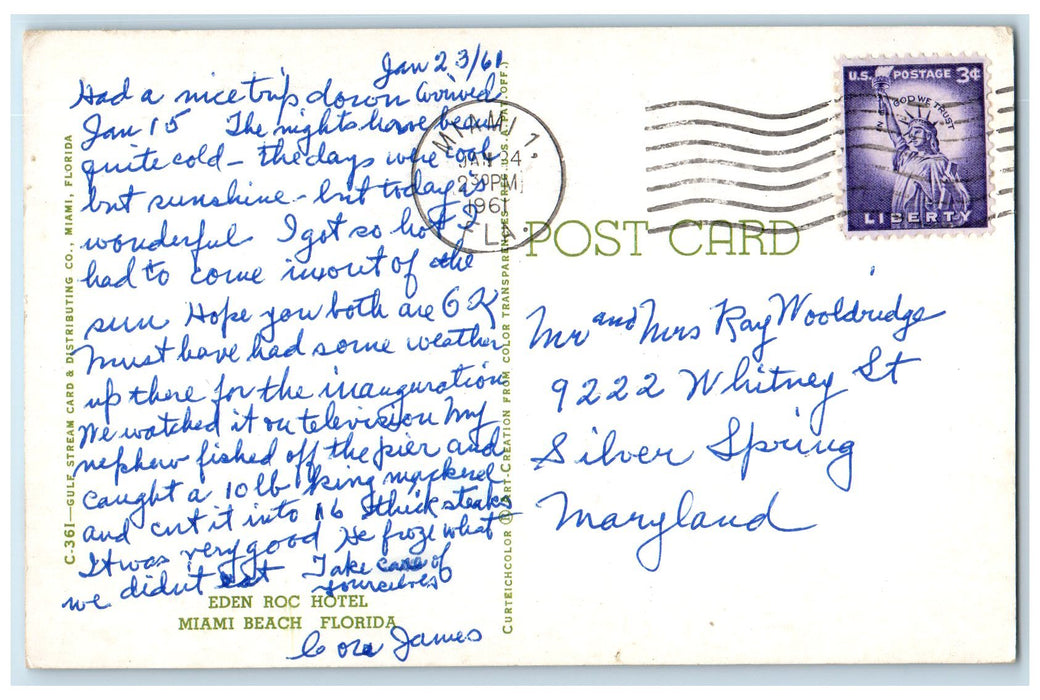 Jan 23/61
Had a nice trip down arrived
Jan 15 The nights have been
quite cold – the days were cool
but sunshine – but today is
wonderful I got so hot I
had to come in out of the
sun Hope you both are OK
Must have had some weather
up there for the inauguration
We watched it on television My
nephew fished off the pier and
caught a 10 lb king mackerel
and cut it into 16 thick steaks
It was very good He froze what
we didnt eat Take care of
yourselves
Cora James
EDEN ROC HOTEL
MIAMI BEACH FLORIDA
C-361—GULF STREAM CARD & DISTRIBUTING CO., MIAMI, FLORIDA
CURTEICHCOLOR ® ART-CREATION FROM COLOR TRANSPARENCIES PAT. OFF.)
MIAMI 1,
JAN 24
2 30 PM
1961
FLA.
POST CARD
U.S. POSTAGE 3¢
IN GOD WE TRUST
LIBERTY
Mr and Mrs Ray Wooldridge
9222 Whitney St
Silver Spring
Maryland